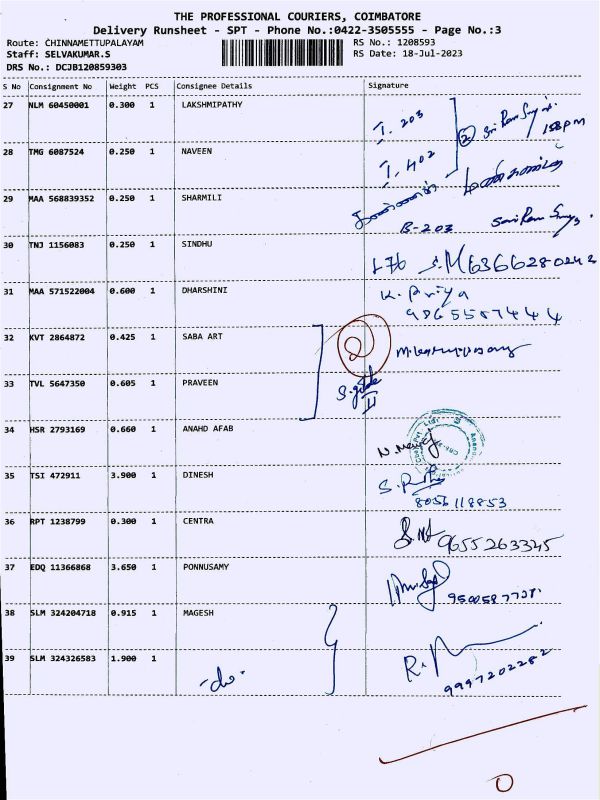 THE PROFESSIONAL COURIERS, COIMBATORE
Delivery Runsheet - SPT - Phone No.:0422-3505555 - Page No.:3
Route: CHINNAMETTUPALAYAM RS No.: 1208593
Staff: SELVAKUMAR.S RS Date: 18-Jul-2023
DRS No.: DCJB120859303
S No Consignment No Weight PCS Consignee Details Signature
27 NLM 60450001 0.300 1 LAKSHMIPATHY
I. 203
28 TMG 6087524 0.250 1 NAVEEN
I. 402
29 MAA 568839352 0.250 1 SHARMILI
B-203
30 TNJ 1156083 0.250 1 SINDHU
31 MAA 571522004 0.600 1 DHARSHINI
K. Priya
32 KVT 2864872 0.425 1 SABA ART
2
33 TVL 5647350 0.605 1 PRAVEEN
34 HSR 2793169 0.660 1 ANAHD AFAB
35 TSI 472911 3.900 1 DINESH
8056118853
36 RPT 1238799 0.300 1 CENTRA
9655263345
37 EDQ 11366868 3.650 1 PONNUSAMY
38 SLM 324204718 0.915 1 MAGESH
39 SLM 324326583 1.900 1 -do-
9997202282